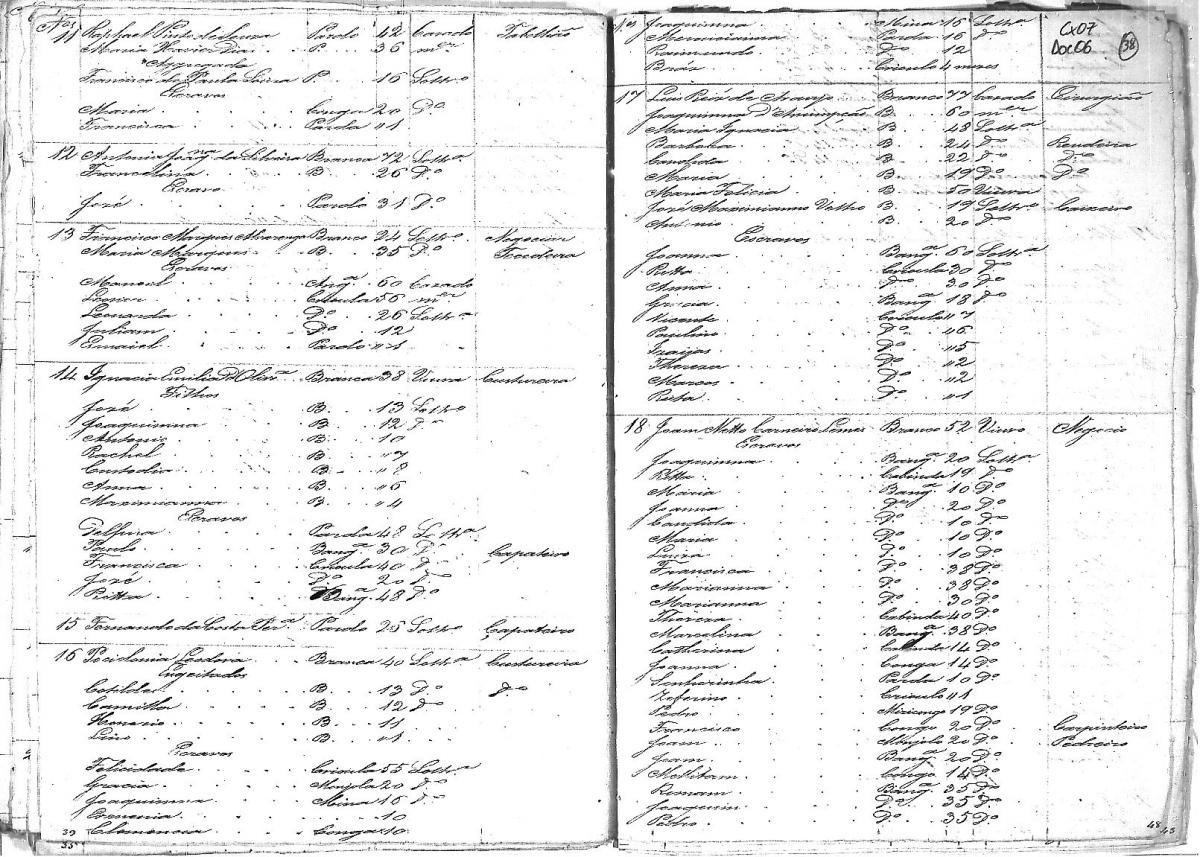 Nos
11 Raphael Pinto de Souza Pardo 42 Cazado Tabellião
Maria Xavier Dias P. 36 m.er
Aggregado
Francisco de Paula Souza P. 16 Soltro
Escravos
Maria Conga 20 Do
Francisca Parda "1
12 Antonia Joaqna da Silveira Branca 72 Soltra
Francelina B. 26 Do
Escravo
José Pardo 31 Do
13 Francisco Marques Alvarenga Branco 24 Soltro Negocian
Maria B. 35 Do Tecedeira
Escravos
Manoel Anga 60 Cazado
Leonor Crioula 56 mer
Leonarda Do 26 Soltra
Juliam Do 12
Pardo "1
14 Ignacia Emilia d'Olivra Branca 38 Viuva Custureira
Filhos
José B. 13 Soltro
Joaquimna B. 12 Da
Antonio B. 10
Rachel B. "7
Custodia B. "8
Anna B. "6
Maximianna B. "4
Escravos
Delfina Parda 48 Soltra
Pardo Bang. 30 Do Çapateiro
Francisca Crioula 40 Do
José Do 20 Do
Ritta Bang. 48 Do
15 Fernando da Costa Pera Pardo 25 Soltro Çapateiro
16 Pocidonia Branca 40 Soltra Custureira
Engeitados
Cotildes B. 13 Do Do
Camilla B. 12 Do
Honorio B. 11
Lino B. "1
Escravos
Felicidade Crioula 55 Soltra
Gracia Monjola 20 Do
Joaquimna Mina 16 Do
10
Clemencia Conga 10
39
33
Nos Joaquimna Mina 16 Soltra
Merencianna Parda 16 Do
Raimundo Do 12
Bráz Crioulo 4 mezes
Cx07
Doc06
38
17 Luis Reis de Araujo Branco 77 Cazado Cirurgião
Joaquimna d'Anunção B. 60 mer
Maria Ignacia B. 48 Soltra
Barbara B. 24 Da Rendeira
Candida B. 22 Da Da
Maria B. 19 Da Da
Maria Felicia B. 50 Viuva
José Maximianno B. 19 Soltro Caixeiro
Antonio B. 20 Do
Escravos
Joanna Banga 60 Soltra
Ritta Crioula 30 Da
Anna Da 30 Da
Gracia Banga 18 Da
Vicente Crioulo "7
Paulino Do "6
Do "5
Thereza Da "2
Marcos Do "2
Rita Da "1
18 Joam Netto Carneiro Leme Branco 52 Viuvo Negocio
Escravos
Joaquimna Banga 20 Soltra
Ritta Cabinda 19 Da
Maria Banga 10 Do
Joanna Do 20 Do
Candida Do 10 Do
Maria Do 10 Do
Luiza Do 10 Do
Francisca Do 38 Do
Marianna Do 38 Do
Marianna Do 30 Do
Thereza Cabinda 40 Do
Marcelina Banga 38 Do
Catherina Cabinda 14 Do
Joanna Conga 14 Do
Senhorinha Parda 10 Do
Zeferino Crioulo "1
Pedro 19 Do
Francisco Congo 20 Do Carpinteiro
Joam Monjolo 20 Do Pedreiro
Joam Banga 20 Do
Congo 14 Do
Romam Banga 35 Do
Joaquim Do 35 Do
Pedro Do 35 Do
48
43